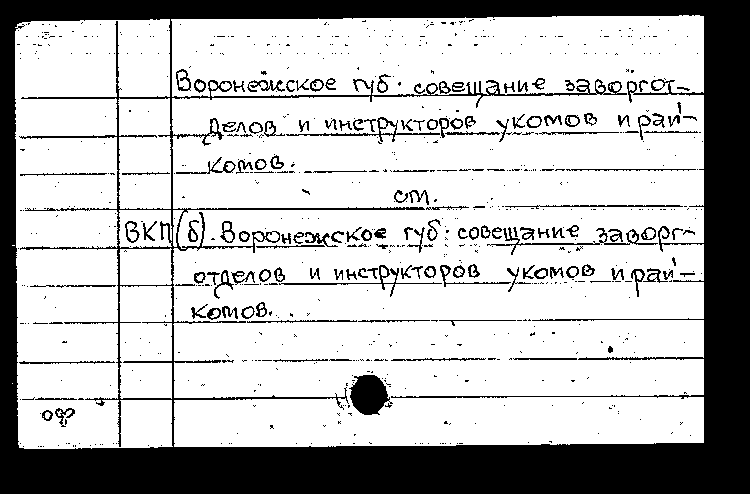 Воронежское губ. совещание заворгот-
делов и инструкторов укомов и рай-
комов.
см.
ВКП(б). Воронежское губ. совещание заворг-
отделов и инструкторов укомов и рай-
комов.